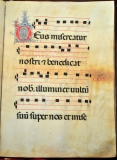 Deus misereatur
nostri ⁊ benedicat
nob. illuminet vultũ
suũ super nos et mise